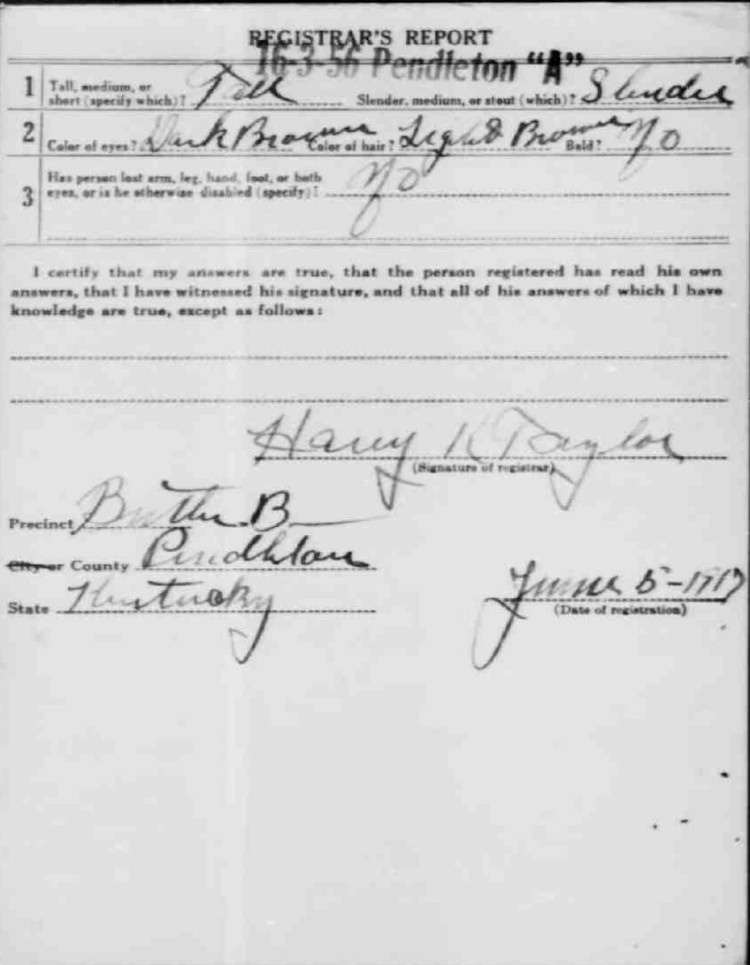 REGISTRAR'S REPORT
16-3-56 Pendleton "A"
1 Tall, medium, or short (specify which)? Tall Slender, medium, or stout (which)? Slender
2 Color of eyes? Dark Brown Color of hair? Light Brown Bald? No
3 Has person lost arm, leg, hand, foot, or both
eyes, or is he otherwise disabled (specify)? No
I certify that my answers are true, that the person registered has read his own
answers, that I have witnessed his signature, and that all of his answers of which I have
knowledge are true, except as follows:
Harry K Taylor
(Signature of registrar)
Precinct Butler B
City or County Pendleton
State Kentucky
June 5-1917
(Date of registration)